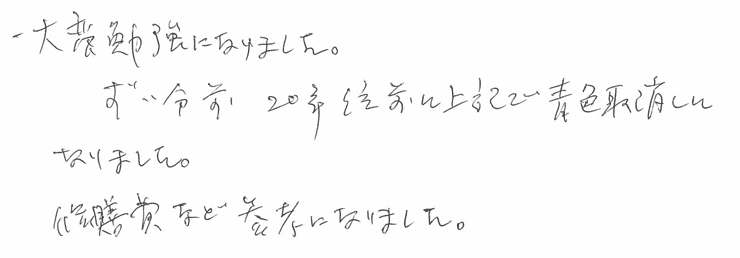 ・大変勉強になりました。
ずい分前 20年位前に上記で青色取消しに
なりました。
修繕費など参考になりました。